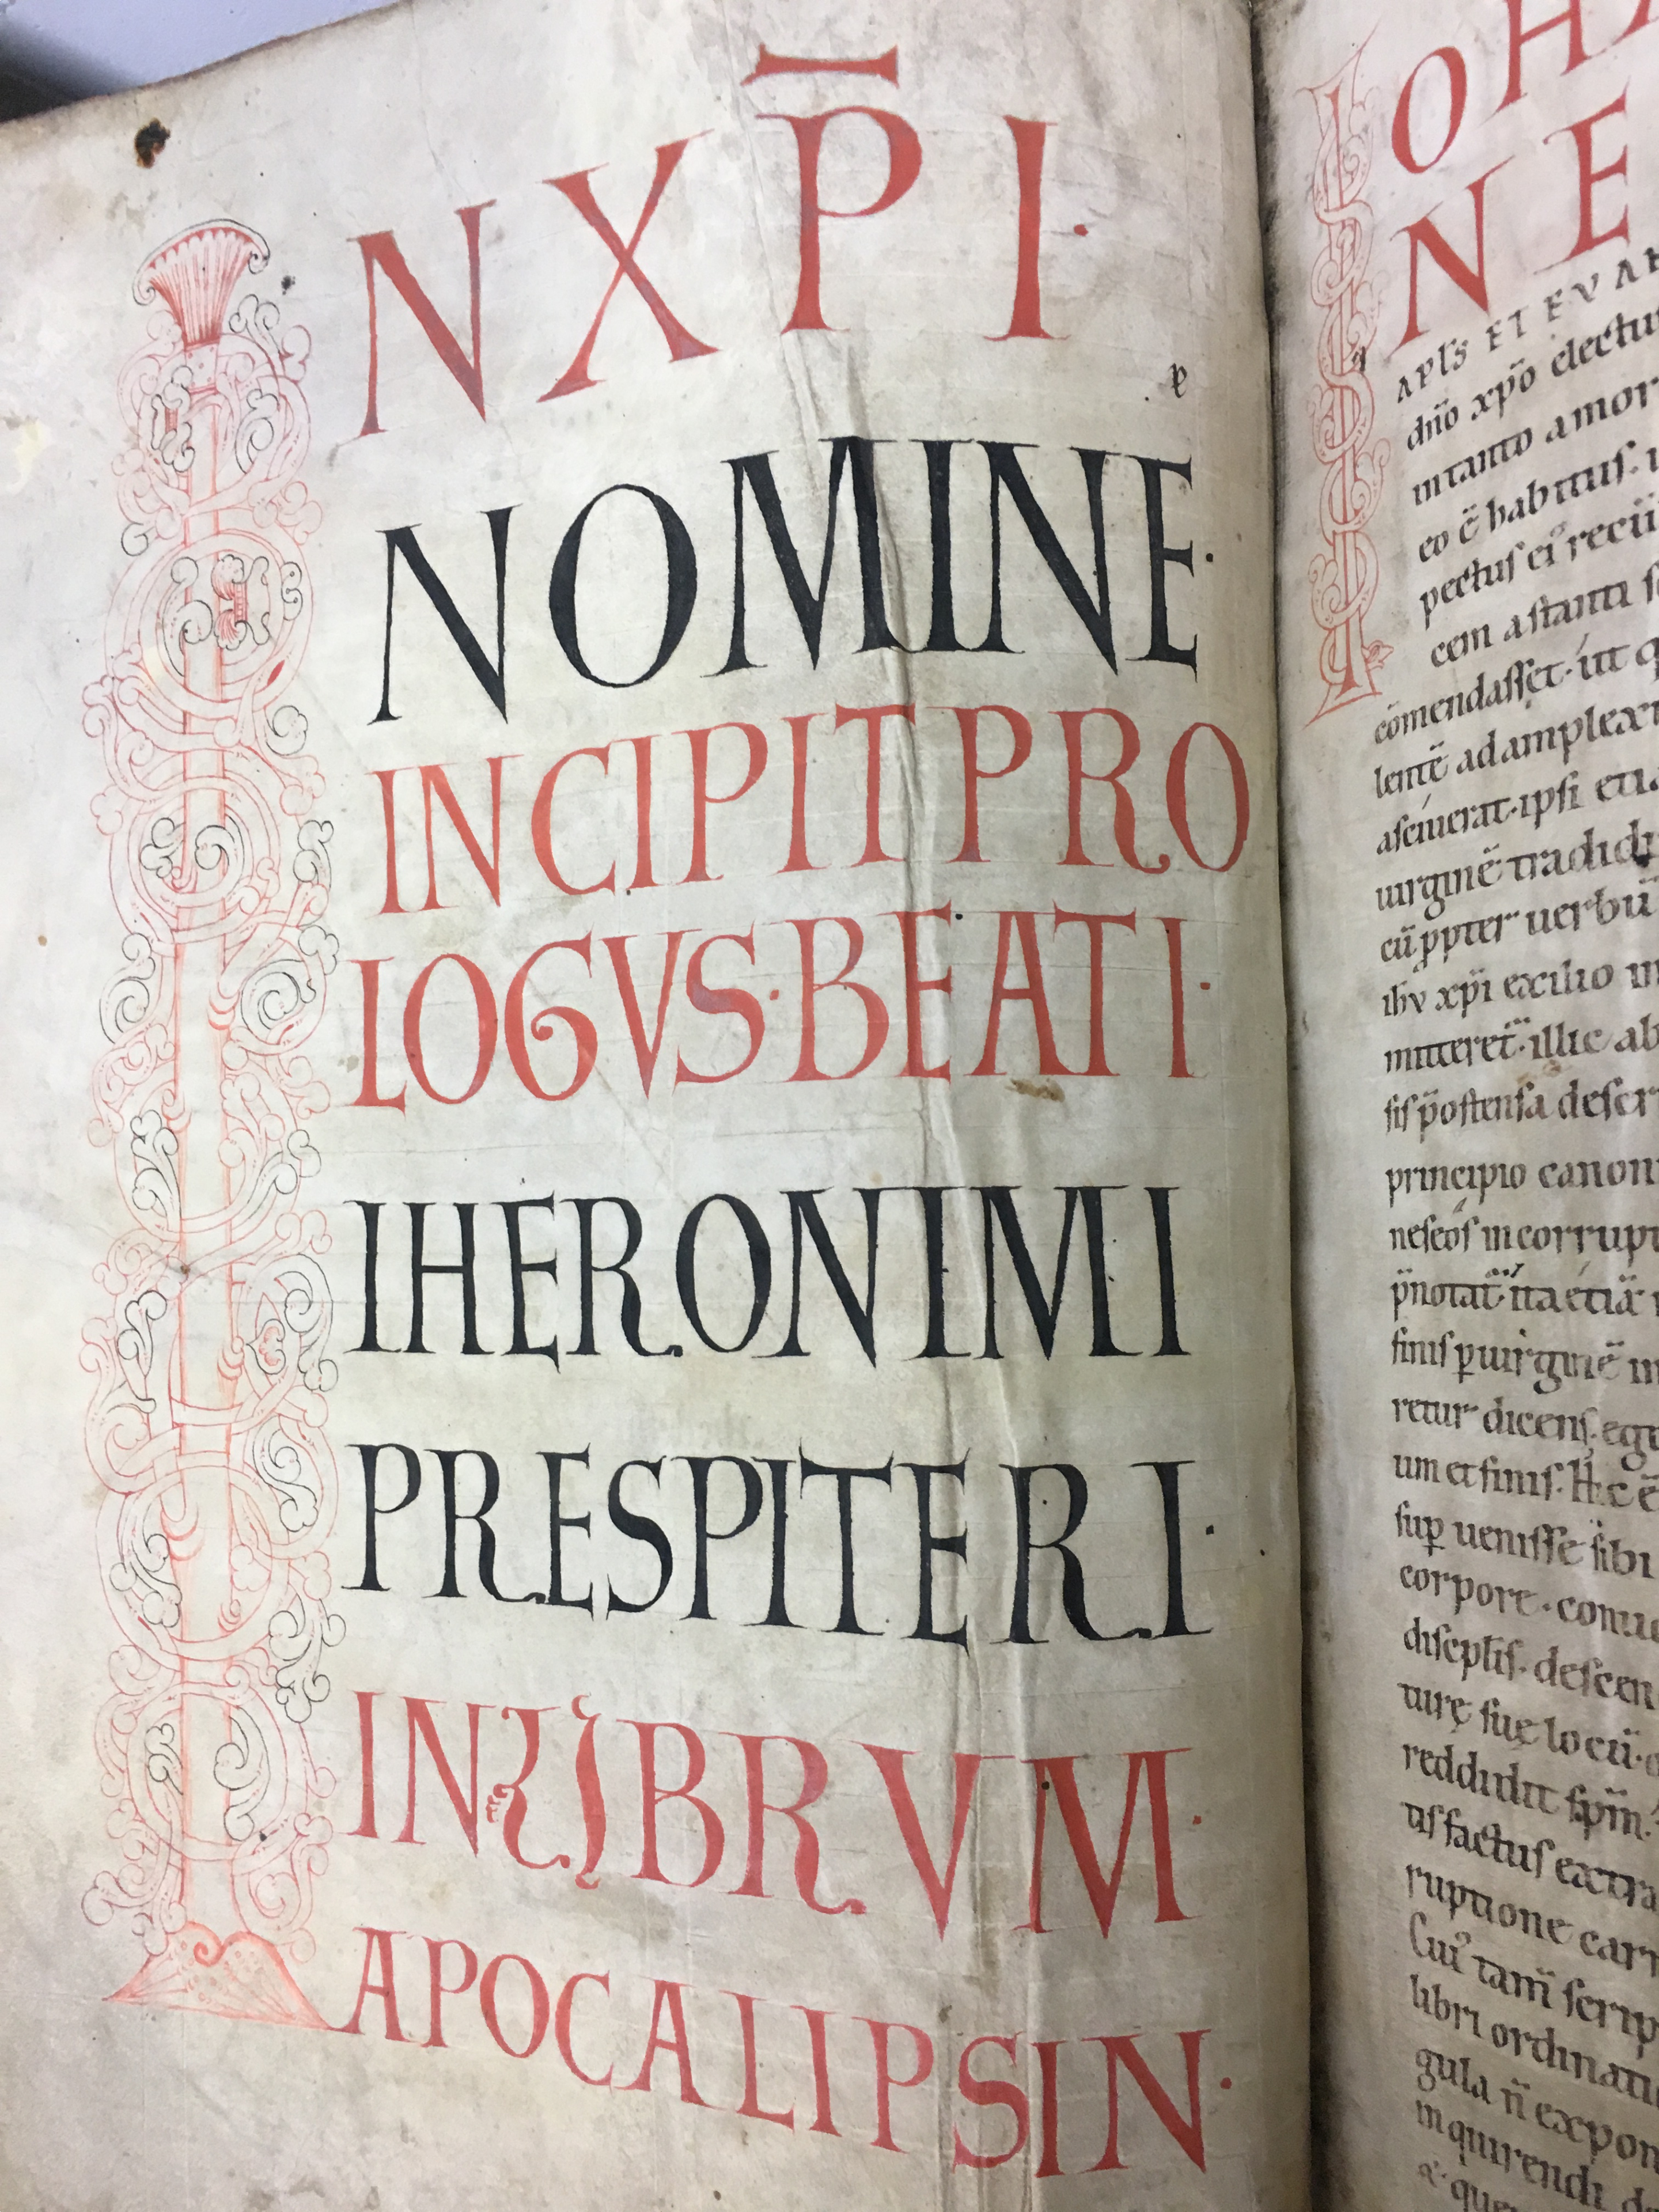 IN XP̄I·
NOMINE·
INCIPIT PRO
LOGVS·BEATI·
IHERONIMI
PRESPITERI·
IN LIBRVM·
APOCALIPSIN·
IOHA
NE
APLS ET EVAN
dn̄o xp̄o electus
in tanto amor
eo ē habitus·
pectus ei᾿ recū
cem astanti
cōmendasset·ut
lentē ad amplexu
asciuerat·ipsi etia
uirginē tradidi
cū ꝓpter uerbū
ihv xp̄i exilio in
mitteret̄·illic ab
sis p̄ostensa descr
principio canon
neseos incorrupt
p̄notat̄ ita etiā
finis ꝑ uirginē in
retur dicens·ego
um et finis·Hic ē
suꝑ uenisse sibi
corpore·conuo
discipł̄is·descen
turę suę locū·
reddidit sp̄m·
us factus extra
ruptione carn
Cui᾿ tam̄ scrip
libri ordinatio
gula n̄ expon
inquirendi de
& que